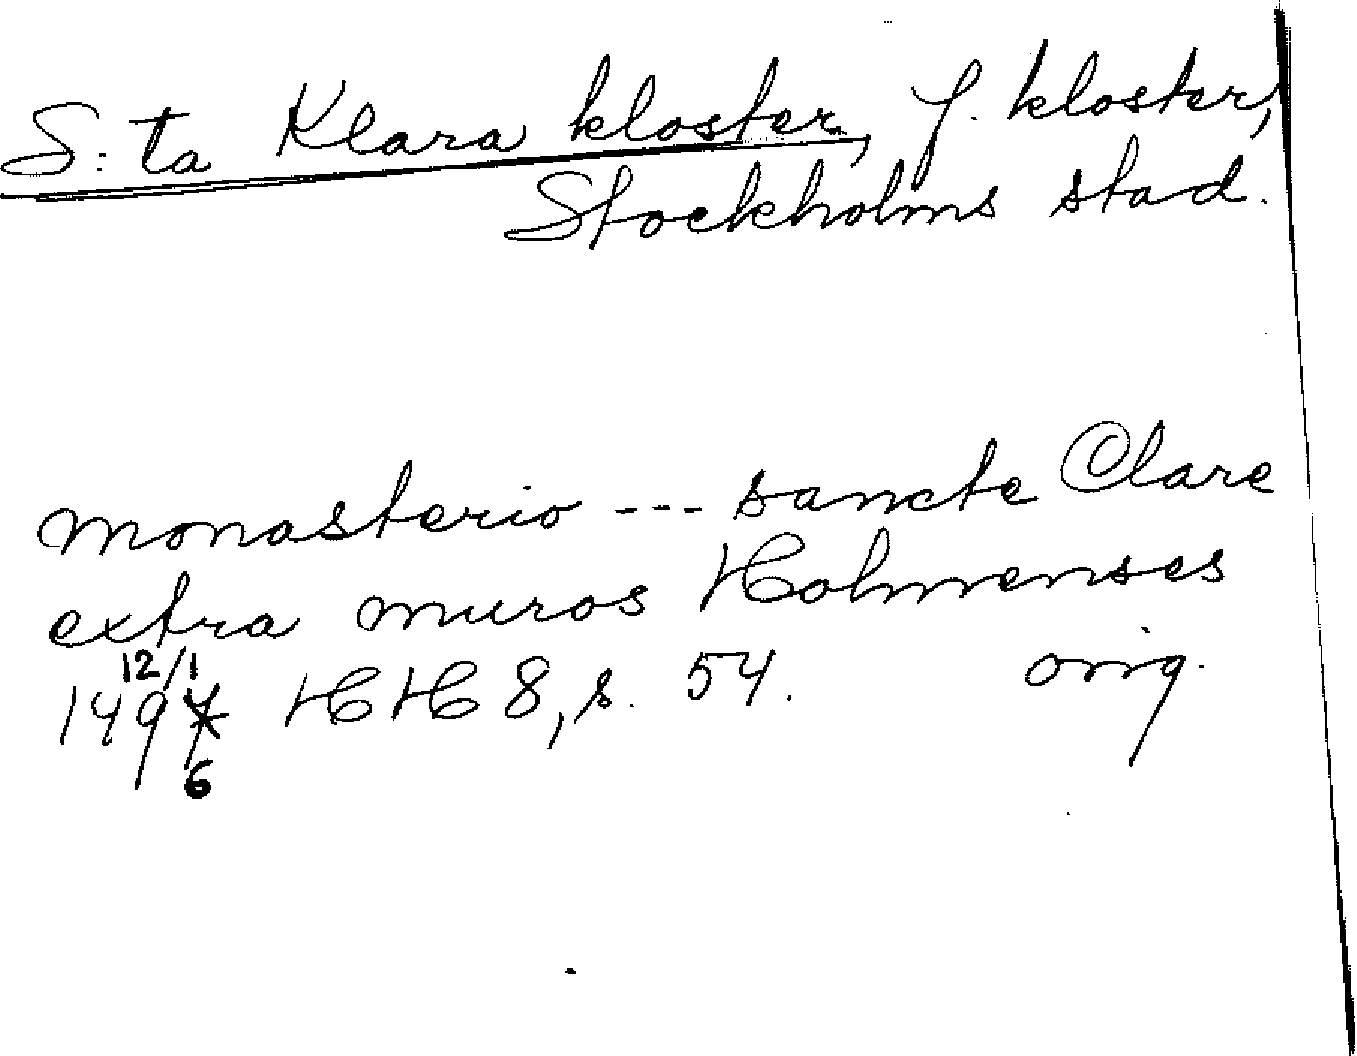 S:ta Klara kloster, f. kloster,
Stockholms stad.
monasterio --- sancte Clare
extra muros Holmenses
12/1
1497 HH 8, s. 54. orig.
6